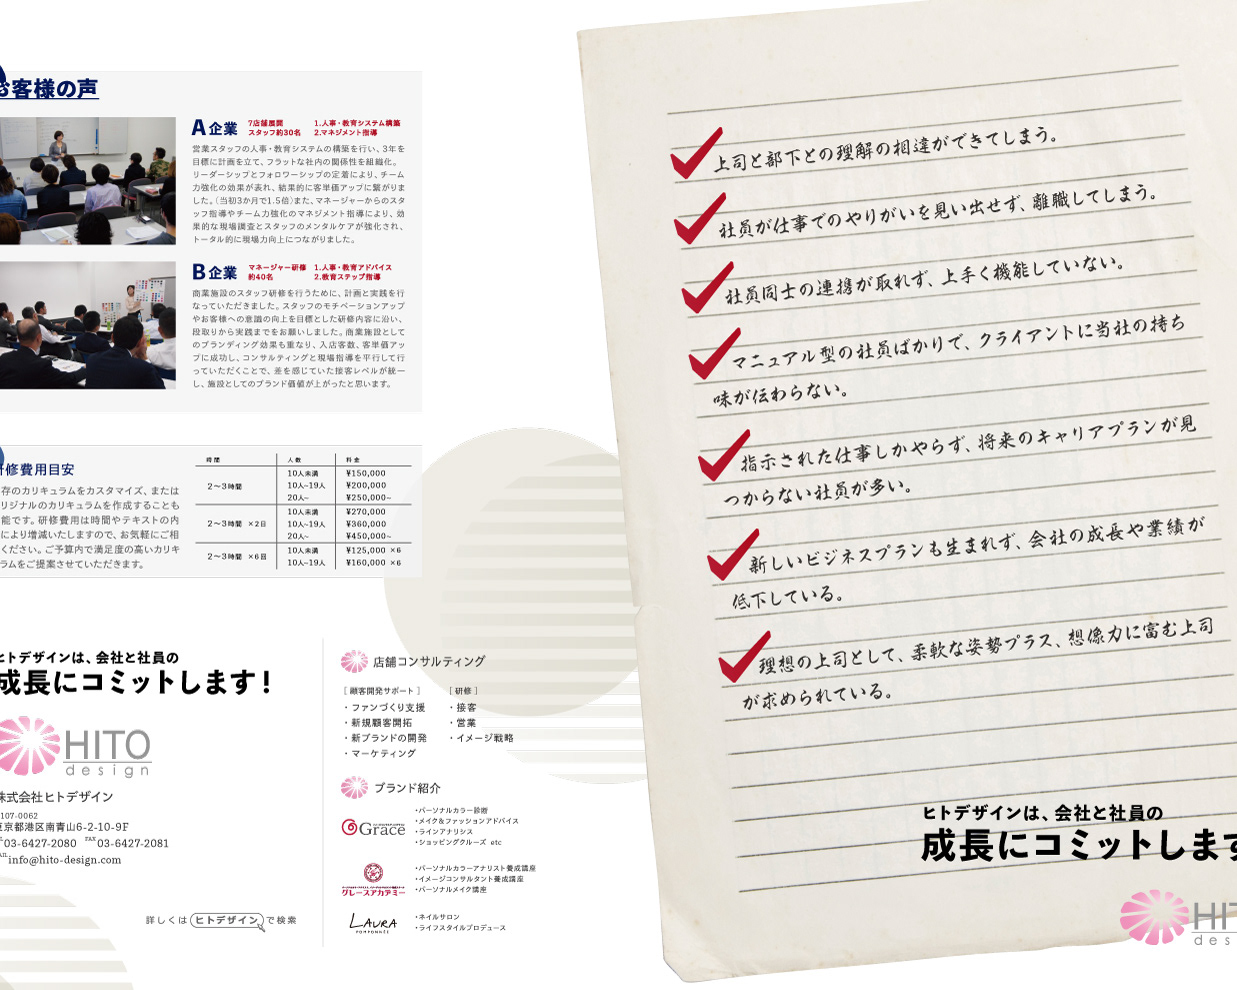 お客様の声
A企業
7店舗展開
スタッフ約30名
1.人事・教育システム構築
2.マネジメント指導
営業スタッフの人事・教育システムの構築を行い、3年を
目標に計画を立て、フラットな社内の関係性を組織化。
リーダーシップとフォロワーシップの定着により、チーム
力強化の効果が表れ、結果的に客単価アップに繋がりま
した。(当初3か月で1.5倍)また、マネージャーからのスタ
ッフ指導やチーム力強化のマネジメント指導により、効
果的な現場調査とスタッフのメンタルケアが強化され、
トータル的に現場力向上につながりました。
B企業
マネージャー研修
約40名
1.人事・教育アドバイス
2.教育ステップ指導
商業施設のスタッフ研修を行うために、計画と実践を行
なっていただきました。スタッフのモチベーションアップ
やお客様への意識の向上を目標とした研修内容に沿い、
段取りから実践までをお願いしました。商業施設として
のブランディング効果も重なり、入店客数、客単価アッ
プに成功し、コンサルティングと現場指導を平行して行
っていただくことで、差を感じていた接客レベルが統一
し、施設としてのブランド価値が上がったと思います。
修費用目安
存のカリキュラムをカスタマイズ、または
リジナルのカリキュラムを作成することも
能です。研修費用は時間やテキストの内
により増減いたしますので、お気軽にご相
ください。ご予算内で満足度の高いカリキ
ラムをご提案させていただきます。
時間 人数 料金
2〜3時間
10人未満 ¥150,000
10人~19人 ¥200,000
20人~ ¥250,000~
2〜3時間 ×2日
10人未満 ¥270,000
10人~19人 ¥360,000
20人~ ¥450,000~
2〜3時間 ×6回
10人未満 ¥125,000 ×6
10人~19人 ¥160,000 ×6
ヒトデザインは、会社と社員の
成長にコミットします!
HITO
design
株式会社ヒトデザイン
107-0062
東京都港区南青山6-2-10-9F
03-6427-2080 FAX 03-6427-2081
info@hito-design.com
詳しくは ヒトデザイン で検索
店舗コンサルティング
[ 顧客開発サポート ]
・ファンづくり支援
・新規顧客開拓
・新ブランドの開発
・マーケティング
[ 研修 ]
・接客
・営業
・イメージ戦略
ブランド紹介
Grace
・パーソナルカラー診断
・メイク&ファッションアドバイス
・ラインアナリシス
・ショッピングクルーズ etc
グレースアカデミー
・パーソナルカラーアナリスト養成講座
・イメージコンサルタント養成講座
・パーソナルメイク講座
LAURA
POMPONNÉE
・ネイルサロン
・ライフスタイルプロデュース
上司と部下との理解の相違ができてしまう。
社員が仕事でのやりがいを見い出せず、離職してしまう。
社員同士の連携が取れず、上手く機能していない。
マニュアル型の社員ばかりで、クライアントに当社の持ち
味が伝わらない。
指示された仕事しかやらず、将来のキャリアプランが見
つからない社員が多い。
新しいビジネスプランも生まれず、会社の成長や業績が
低下している。
理想の上司として、柔軟な姿勢プラス、想像力に富む上司
が求められている。
ヒトデザインは、会社と社員の
成長にコミットします
HIT
des